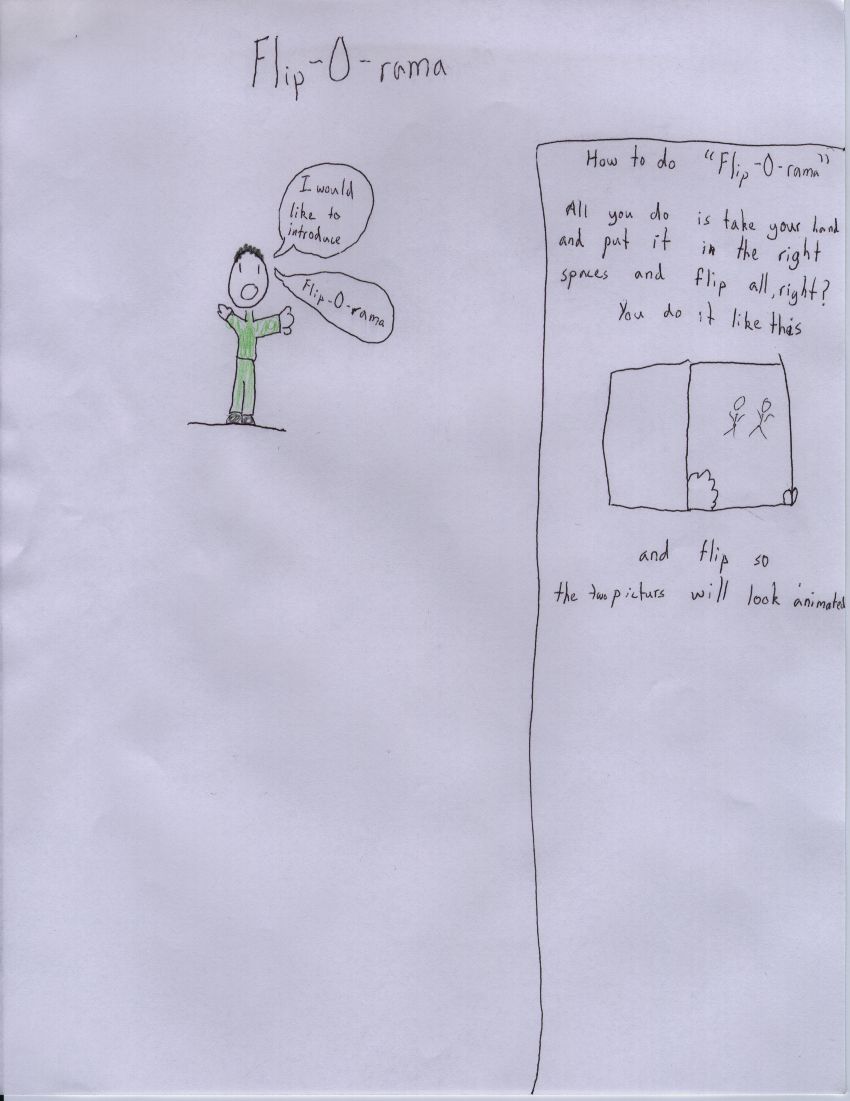 Flip-O-rama
I would
like to
introduce
Flip-O-rama
How to do "Flip-O-rama"
All you do is take your hand
and put it in the right
spaces and flip all, right?
You do it like this
and flip so
the two picturs will look animated